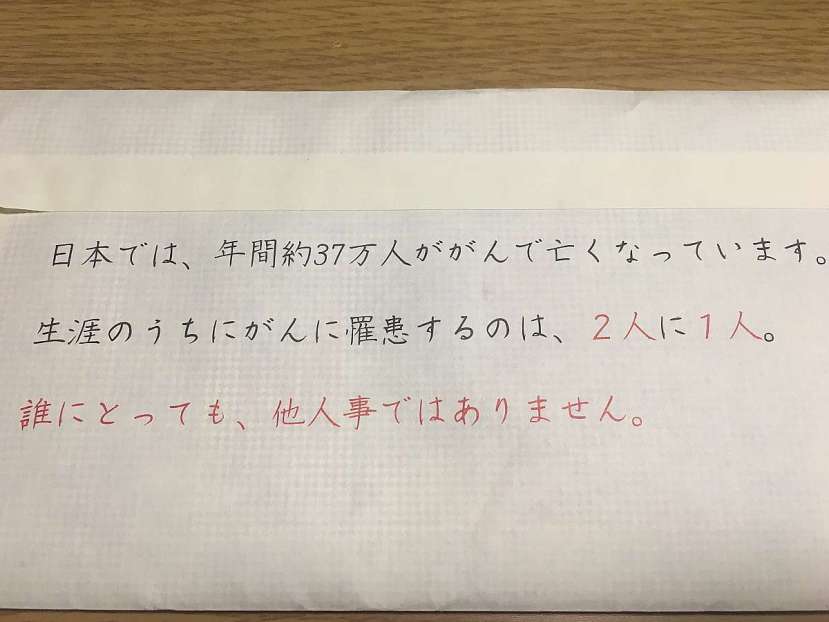 日本では、年間約37万人ががんで亡くなっています。
生涯のうちにがんに罹患するのは、２人に１人。
誰にとっても、他人事ではありません。